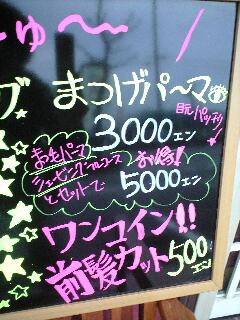 ゅ〜
ブ
まつげパーマ
目元パッチリ
3000エン
まゆパーマ
シェービングフルコース
お得!
とセットで
5000エン
ワンコイン!!
前髪カット500エン!